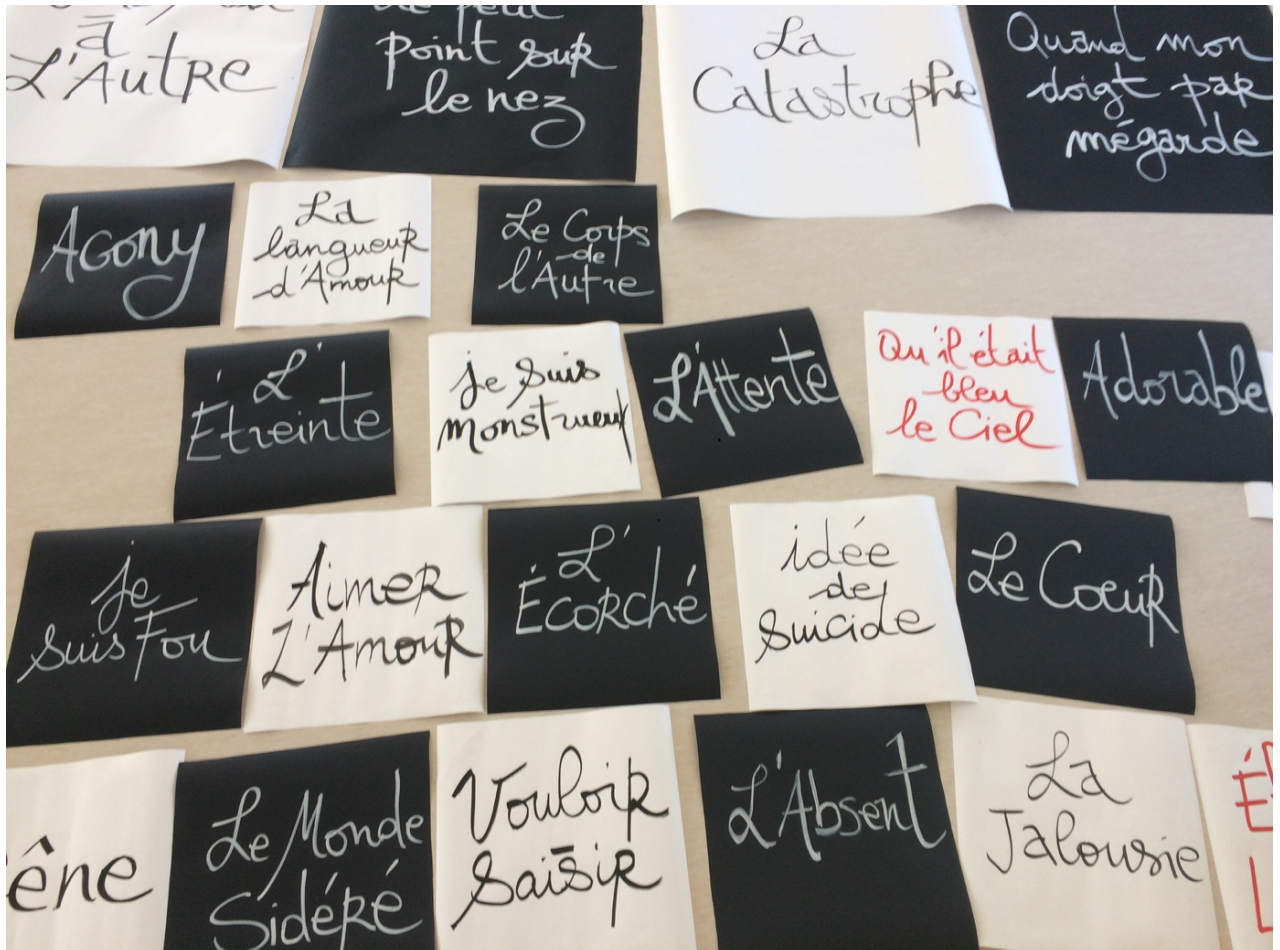 à
L'Autre
point sur
le nez
La
Catastrophe
Quand mon
doigt par
mégarde
Agony
La
langueur
d'Amour
Le Corps
de
l'Autre
L'
Étreinte
je suis
monstrueux
L'Attente
Qu'il était
bleu
le Ciel
Adorable
je
suis Fou
Aimer
L'Amour
L'
Écorché
idée
de
Suicide
Le Coeur
êne
Le Monde
Sidéré
Vouloir
Saisir
L'Absent
La
Jalousie